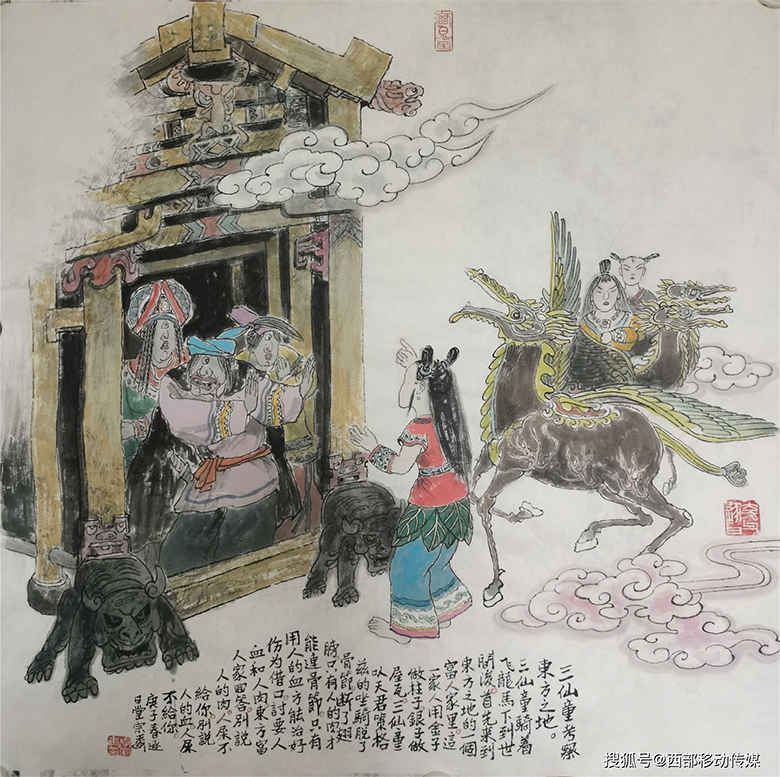 三仙童考察
東方之地。
三仙童騎着
飞龍馬下到世
間後。首先来到
東方之地的一個
富人家里。這
一家人用金子
做柱子。銀子做
屋瓦三仙童
以天君策格
兹的坐騎脱了
骨節断了翅
膀只有人的肉才
能連骨節只有
用人的血方能治好
伤为借口討要人
血和人肉東方富
人家回答别説
人的肉。人屎不
給你别説
人的血人尿
不給你
庚子春
日堂宗秀
搜狐号@西部移动传媒